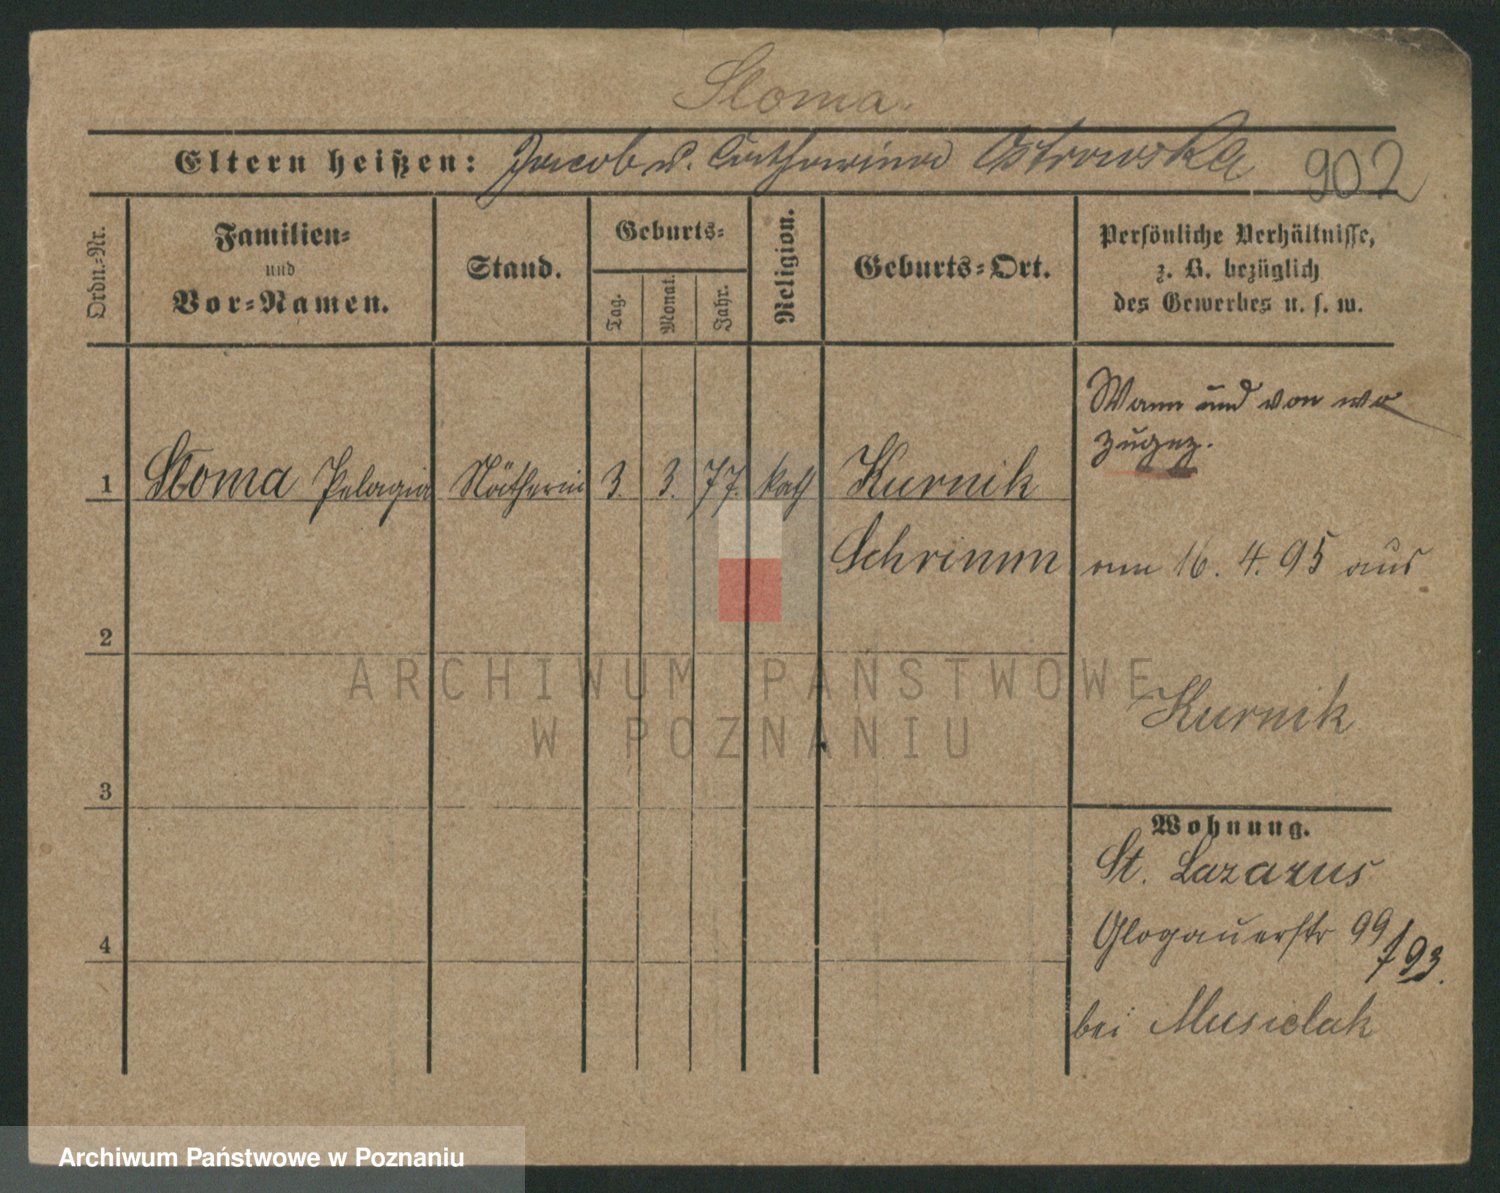 Sloma.
Eltern heißen: Jacob u. Catharina Ostrowska 902
Ordn.-Nr.
Familien-
und
Vor-Namen.
Stand.
Geburts-
Tag.
Monat.
Jahr.
Religion.
Geburts-Ort.
Persönliche Verhältnisse,
z. B. bezüglich
des Gewerbes u. s. w.
Wann und von wo
zugez.
1 Sloma Pelagia Nätherin 3. 3. 77. kath Kurnik
Schrimm
am 16. 4. 95 aus
Kurnik
2
3
4
Wohnung.
St. Lazarus
Glogauerstr 99/93.
bei Musielak
ARCHIWUM PAŃSTWOWE
W POZNANIU
Archiwum Państwowe w Poznaniu